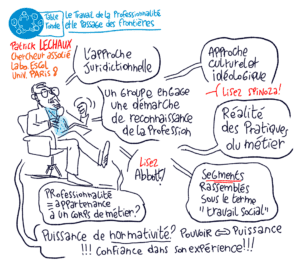 Table Ronde
Le Travail de la Professionnalité
et le Passage des frontières
Patrick LECHAUX
Chercheur associé
Labo ESCOL
Univ. PARIS 8
L'approche
Juridictionnelle
APPROCHE
culturelle et
idéologique
Lisez Spinoza!
un groupe engage
une démarche
de reconnaissance
de la Profession
Réalité
des Pratiques,
du métier
Lisez
Abbott!
Segments
Rassemblés
sous le terme
"travail social"
PROfessionnalité
= appartenance
à un corps de métier?
Puissance de normativité? POUVOIR ⇔ Puissance
!!! Confiance dans son expérience!!!